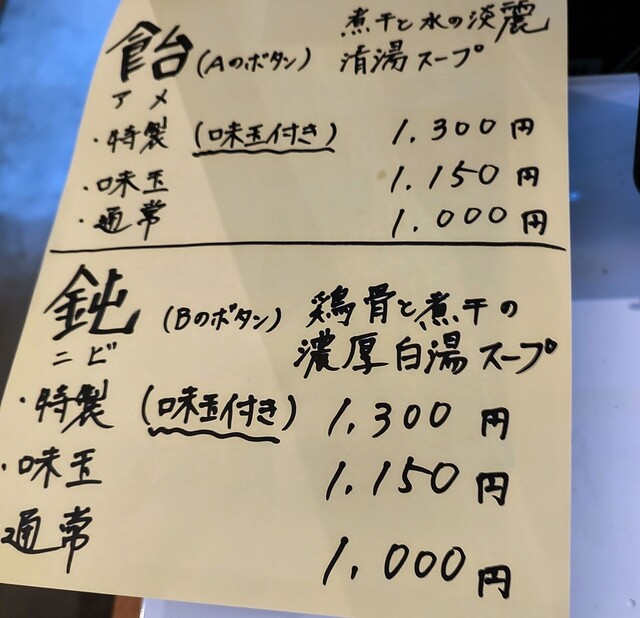 飴 (Aのボタン) 煮干と水の淡麗
清湯スープ
アメ
・特製 (味玉付き) 1.300円
・味玉 1.150円
・通常 1.000円
鈍 (Bのボタン) 鶏骨と煮干の
濃厚白湯スープ
ニビ
・特製 (味玉付き) 1.300円
・味玉 1.150円
通常 1.000円